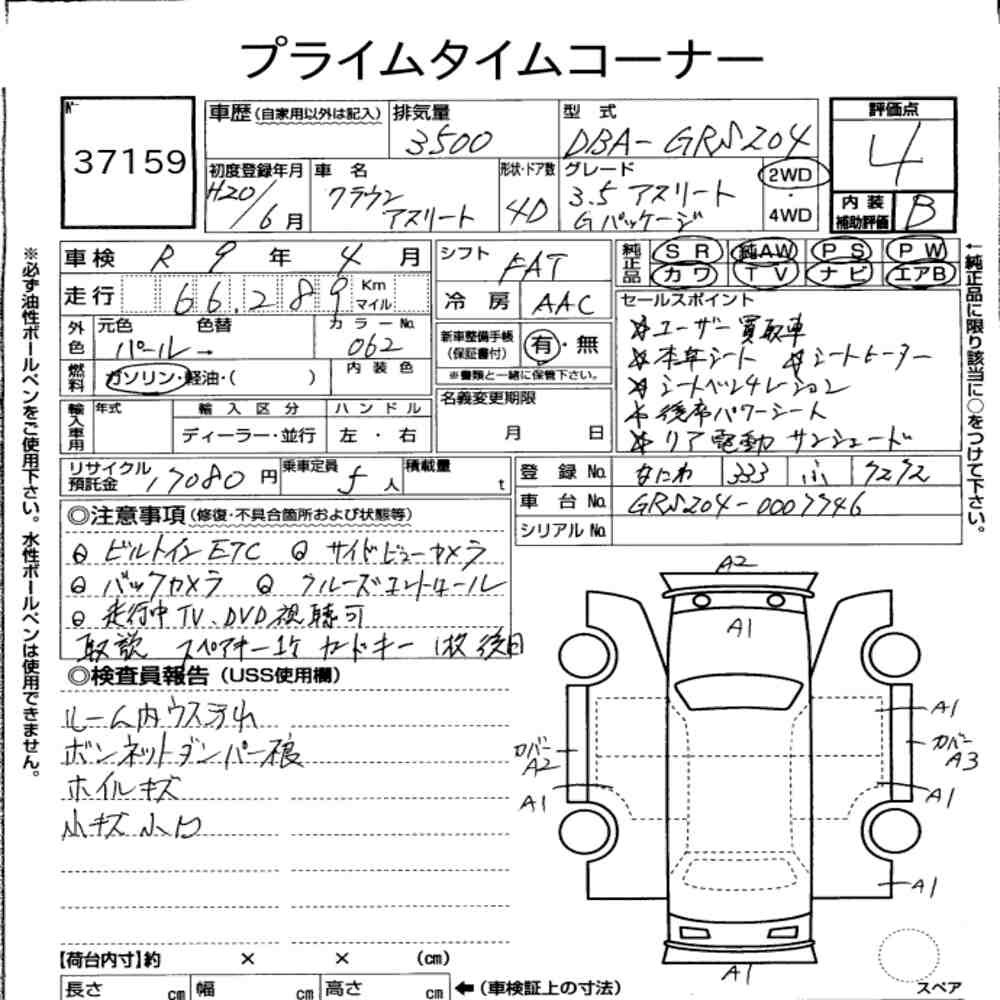 プライムタイムコーナー
№ 37159
車歴 (自家用以外は記入)
排気量 3500
型式 DBA-GRS204
評価点 4
初度登録年月 H20/6月
車名 クラウン アスリート
形状・ドア数 4D
グレード 3.5 アスリート Gパッケージ
2WD・4WD
内装補助評価 B
※必ず油性ボールペンをご使用下さい。水性ボールペンは使用できません。
車検 R 9 年 4 月
シフト FAT
純正品 SR 純AW PS PW
カワ TV ナビ エアB
←純正品に限り該当に○をつけて下さい。
走行 66,289 Km マイル
冷房 AAC
セールスポイント
ユーザー買取車
本革シート シートヒーター
シートベンチレーション
後席パワーシート
リア電動サンシェード
外色 元色 パール→ 色替 カラーNo. 062
新車整備手帳(保証書付) 有・無
※書類と一緒に保管下さい。
燃料 ガソリン・軽油・( ) 内装色
名義変更期限 月 日
輸入車用 年式 輸入区分 ハンドル
ディーラー・並行 左・右
リサイクル預託金 17080円
乗車定員 5人
積載量 t
登録No. なにわ 333 ふ 7272
車台No. GRS204-0007746
シリアルNo.
◎注意事項(修復・不具合箇所および状態等)
ビルトインETC サイドビューカメラ
バックカメラ クルーズコントロール
走行中TV、DVD視聴可
取説 スペアキー1ケ カードキー1枚 後日
◎検査員報告 (USS使用欄)
ルーム内ウスヨゴレ
ボンネットダンパー不良
ホイルキズ
小キズ小凹
A2
A1
A1
カバーA2
カバーA3
A1
A1
A1
A1
【荷台内寸】約 × × (cm)
長さ cm 幅 cm 高さ cm ←(車検証上の寸法)
スペア